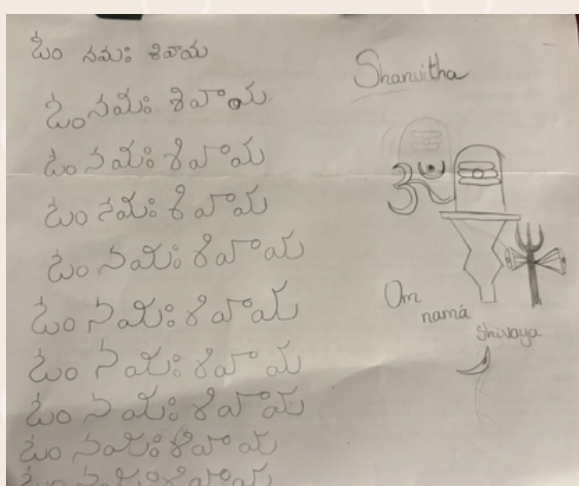 ఓం నమః శివాయ
ఓం నమః శివాయ
ఓం నమః శివాయ
ఓం నమః శివాయ
ఓం నమః శివాయ
ఓం నమః శివాయ
ఓం నమః శివాయ
ఓం నమః శివాయ
ఓం నమః శివాయ
ఓం నమః శివాయ
Shanvitha
ॐ
Om
namá
Shivaya